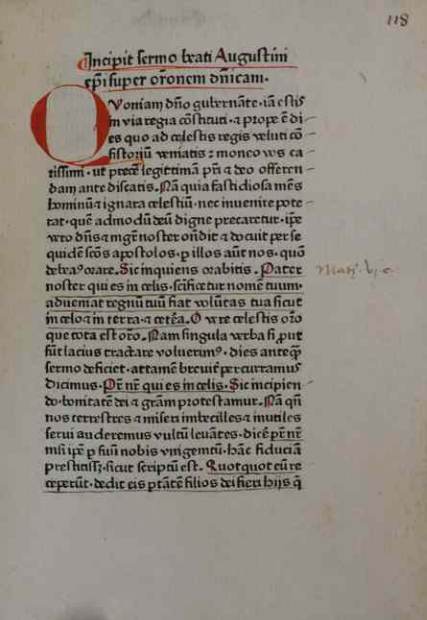 118
Incipit sermo beati Augustini
ep̄i super or̄onem dn̄icam.
Quoniam dn̄o gubernāte · iā estis
in via regia cōstituti · ⁊ prope ē di⸗
es quo ad celestis regis veluti cō⸗
sistoriū veniatis : moneo vos ca⸗
rissimi · ut precē legittimā pr̄i ⁊ deo offeren⸗
dam ante discatis. Nā quia fastidiosa mēs
hominū ⁊ ignara celestiū · nec invenire pote⸗
rat · quē admodū deū digne precaretur · ip̄e
vero dn̄s ⁊ mgr̄ noster on̄dit ⁊ docuit per se
quidē scōs apostolos · p illos aūt nos · quō
debeamꝰ orare. Sic inquiens orabitis. Pater
noster qui es in celis · scīficetur nomē tuum ·
adveniat regnū tuū fiat volūtas tua sicut
in celo ⁊ in terra · ⁊ cetēa. O vre celestis or̄o
que tota est or̄o. Nam singula verba si put
sūt lacius tractare voluerimꝰ · dies anteq̄
sermo deficiet · attamē breviē percurramus
dicimus. Pr̄ nr̄ qui es in celis. Sic incipien⸗
do · bonitatē dei ⁊ grām protestamur. Nā qn̄
nos terrestres ⁊ miseri imbecilles ⁊ inutiles
servi auderemus vultū levātes · dicē pr̄ nr̄
nisi ip̄e p suū nobis vnigenitū · hāc fiduciā
prestitissꝫ · sicut scriptū est. Quotquot eū re
ceperūt · dedit eis p̄tātem filios dei fieri hijs q̄
Mat. vj. c.